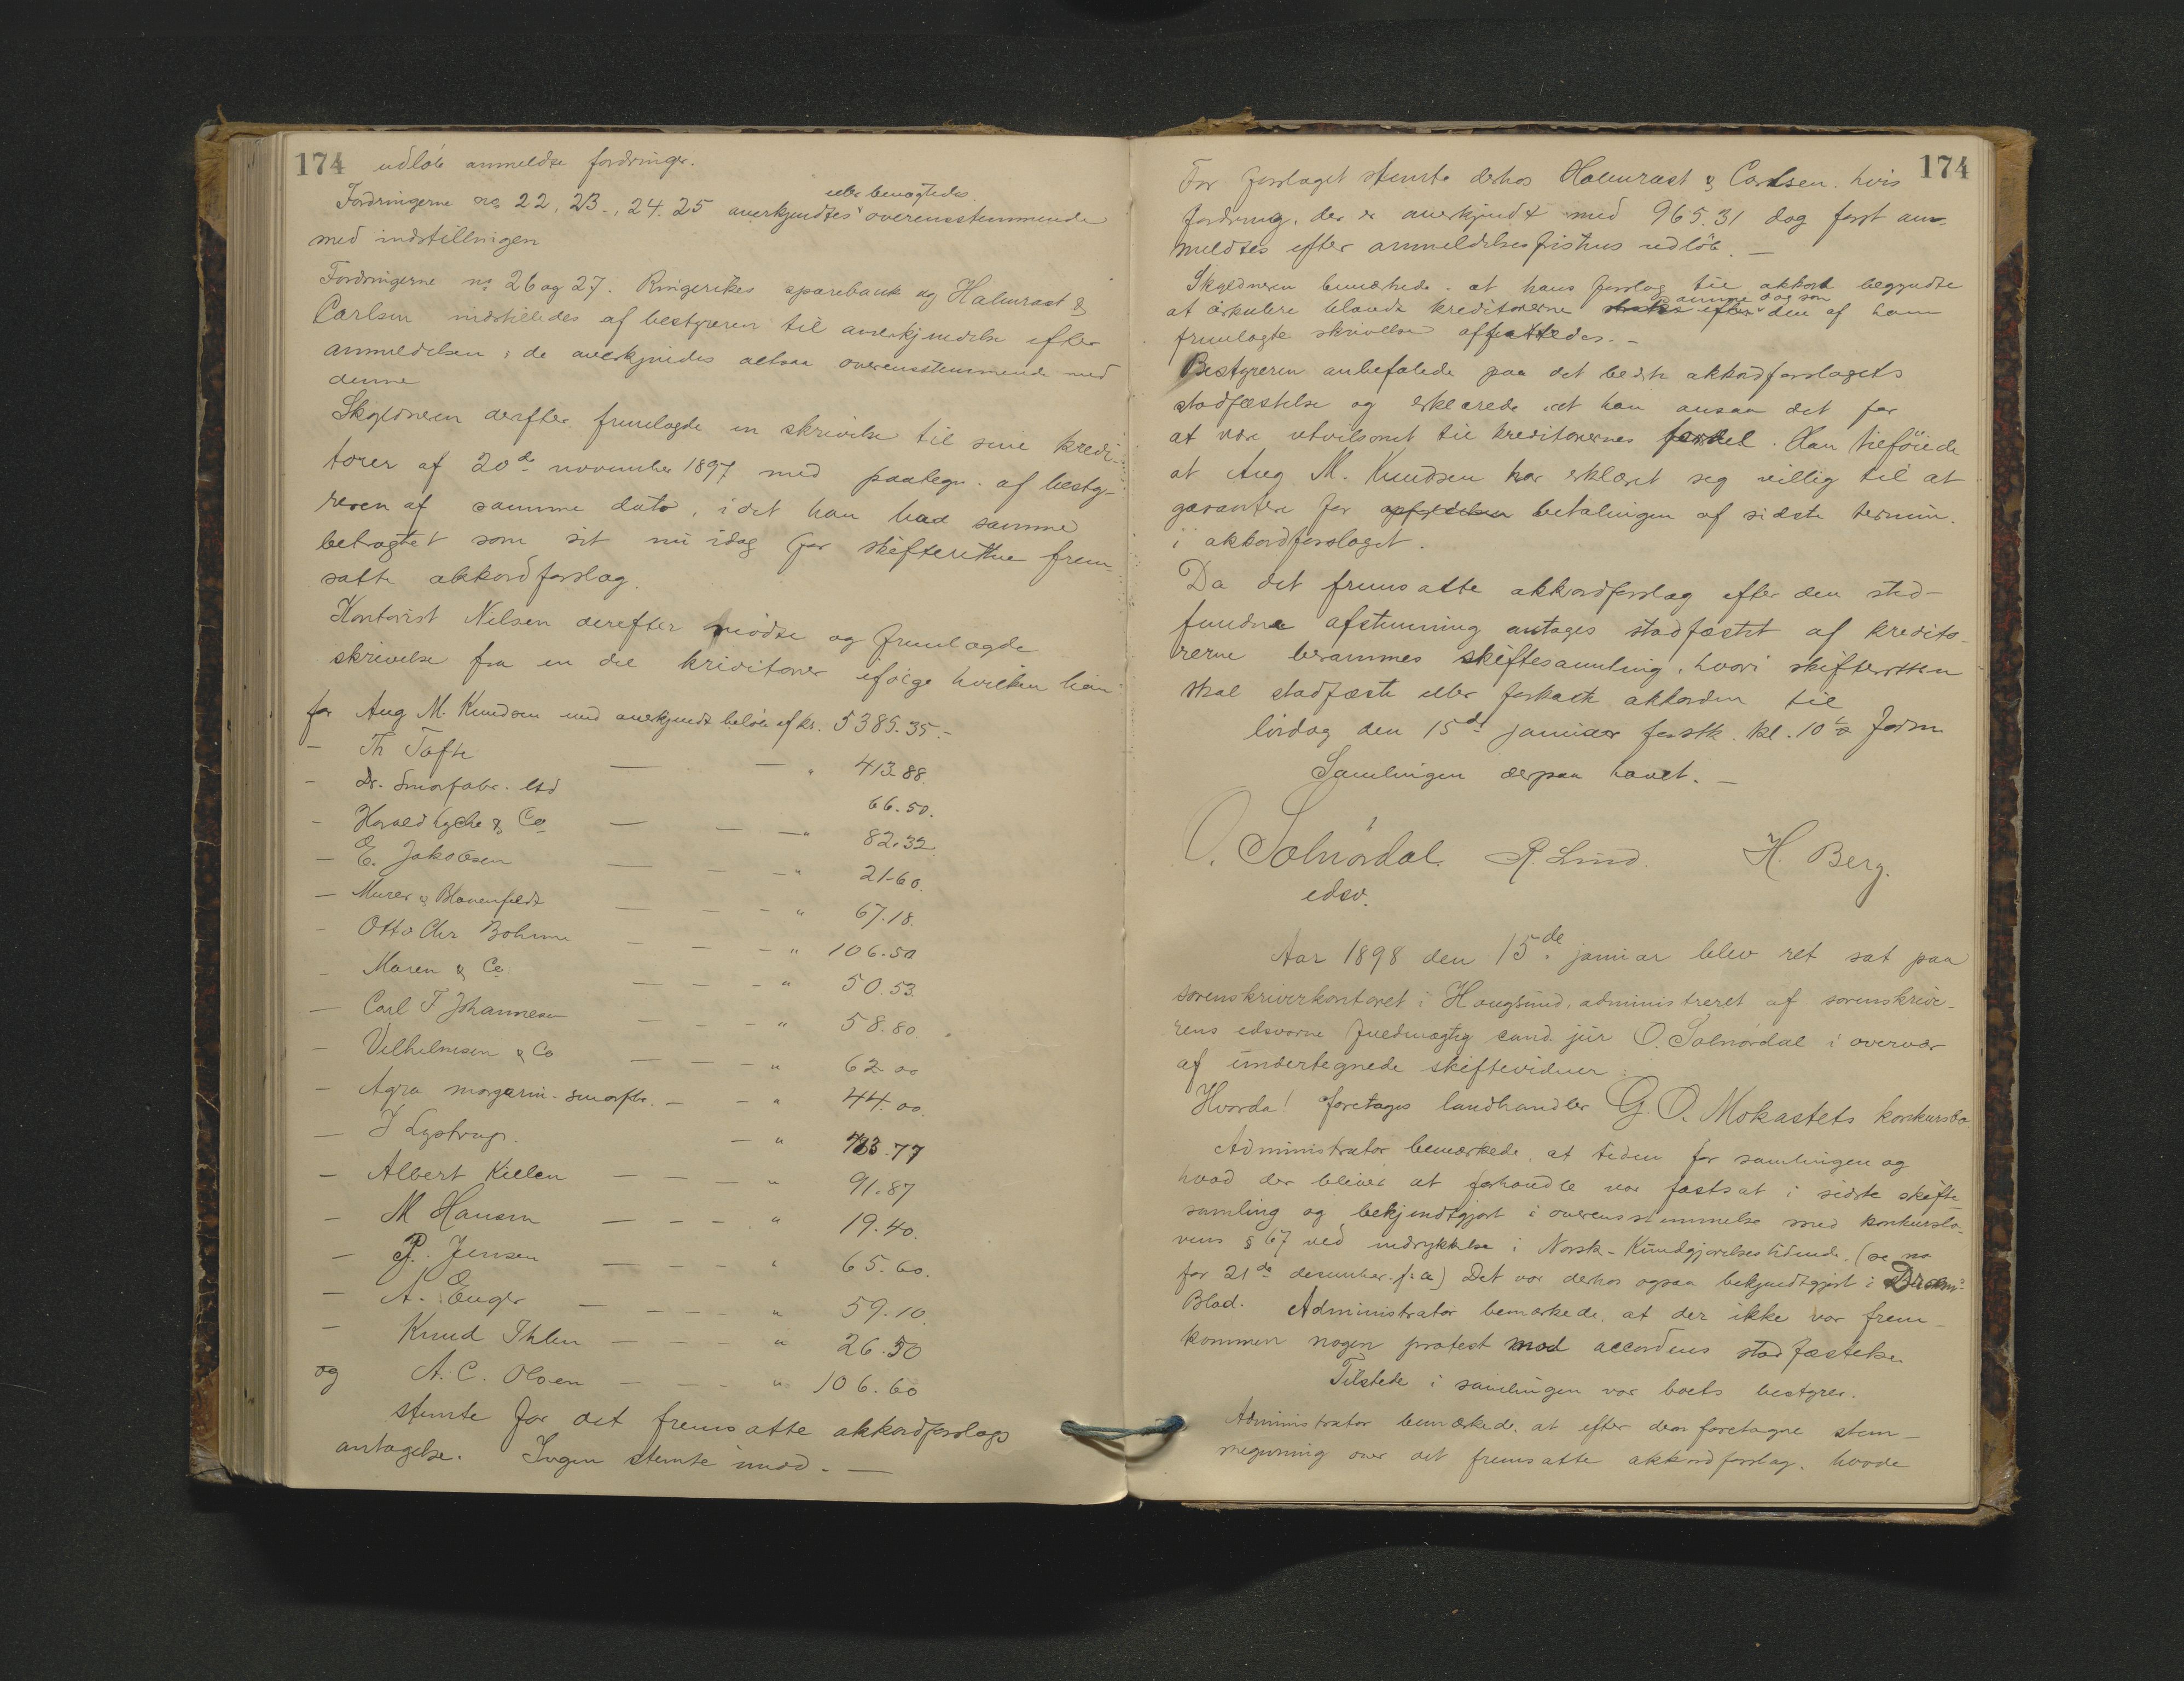 174 udløb anmeldte fordringer.
eller benægtedes
Fordringerne no 22, 23., 24. 25 anerkjendtes overensstemmende
med indstillingen
Fordringerne no 26 og 27. Ringerikes sparebank og Halmrast &
Carlsen indstilledes af bestyreren til anerkjendelse efter
anmeldelsen; de anerkjendes altsaa overensstemmende med
denne
Skyldneren derefter fremlagde en skrivelse til sine kredi-
torer af 20de november 1897 med paategn. af besty-
reren af samme dato, idet han bad samme
betragtet som sit nu idag for skifteretten frem-
satte akkordforslag.
Kontorist Nilsen derefter mødte og fremlagde
skrivelse fra en del kreditorer ifølge hvilken han
for Aug M. Knudsen med anerkjendt beløb af kr. 5385.35.-
— Th Tofte — — " 413.88.
— Dr. Smørfabr. 66.50.
— Harald Lyche & Co — — — " 82.32.
— E. Jakobsen — — — " 21.60.
— Meurer & Blavenfeldt — — — " 67.18.
— Otto Chr Bohme — — — " 106.50
— Maren & Co — — — " 50.53.
— Carl F Johannesen — — — " 58.80.
— Vilhelmsen & Co — — — " 62.00
— Agra margarin-smørfbr. — — " 44.00.
— J Lystrup. — " 77
— Albert Kiellen — — — — " 91.87
— M Hansen — — — " 19.40.
— P. Jensen — — — " 65.60.
— A. Enger — — — — " 59.10.
— Knud Ihlen — — — " 26.50
og A. C. Olsen — — — " 106.60
stemte for det fremsatte akkordforslags
antagelse. Ingen stemte imod. —
174
For forslaget stemte derhos Halmrast & Carlsen, hvis
fordring, der er anerkjendt med 965.31 dog først an-
meldtes efter anmeldelsesfristens udløb. —
Skyldneren bemærkede, at hans forslag til akkord begyndte
samme dag som
at cirkulere blandt kreditorerne straks efter den af ham
fremlagte skrivelse affattedes. —
Bestyreren anbefalede paa det bedste akkordforslagets
stadfæstelse og erklærede at han ansaa det for
at være utvilsomt til kreditorernes fordel. Han tilføiede
at Aug M. Knudsen har erklæret seg villig til at
garantere for opfyldelsen betalingen af sidste termin
i akkordforslaget.
Da det fremsatte akkordforslag efter den sted-
fundne afstemning antages stadfæstet af kredito-
rerne berammes skiftesamling, hvori skifteretten
skal stadfæste eller forkaste akkorden til
lørdag den 15de januar førstk. kl. 10 1/2 Form
Samlingen derpaa hævet. —
O. Solnørdal. R. Lind. H. Berg.
edsv.
Aar 1898 den 15de januar blev ret sat paa
sorenskriverkontoret i Hougsund, administreret af sorenskrive-
rens edsvorne fuldmægtig cand. jur O. Solnørdal i overvær
af undertegnede skiftevidner:
Hvorda! foretages landhandler G. O. Mokastets konkursbo
Administrator bemærkede, at tiden for samlingen og
hvad der bliver at forhandle var fastsat i sidste skifte-
samling og bekjendtgjort i overensstemmelse med konkurslo-
vens § 67 ved indrykkelse i Norsk-Kundgjørelsestidende. (se no
for 21de desember f: a) Det var derhos ogsaa bekjendtgjort i Dram:
Blad. Administrator bemærkede, at der ikke var frem-
kommen nogen protest mod accordens stadfæstelse
Tilstede i samlingen var boets bestyrer.
Administrator bemærkede, at efter den foretagne stem-
megivning over det fremsatte akkordforslag, havde